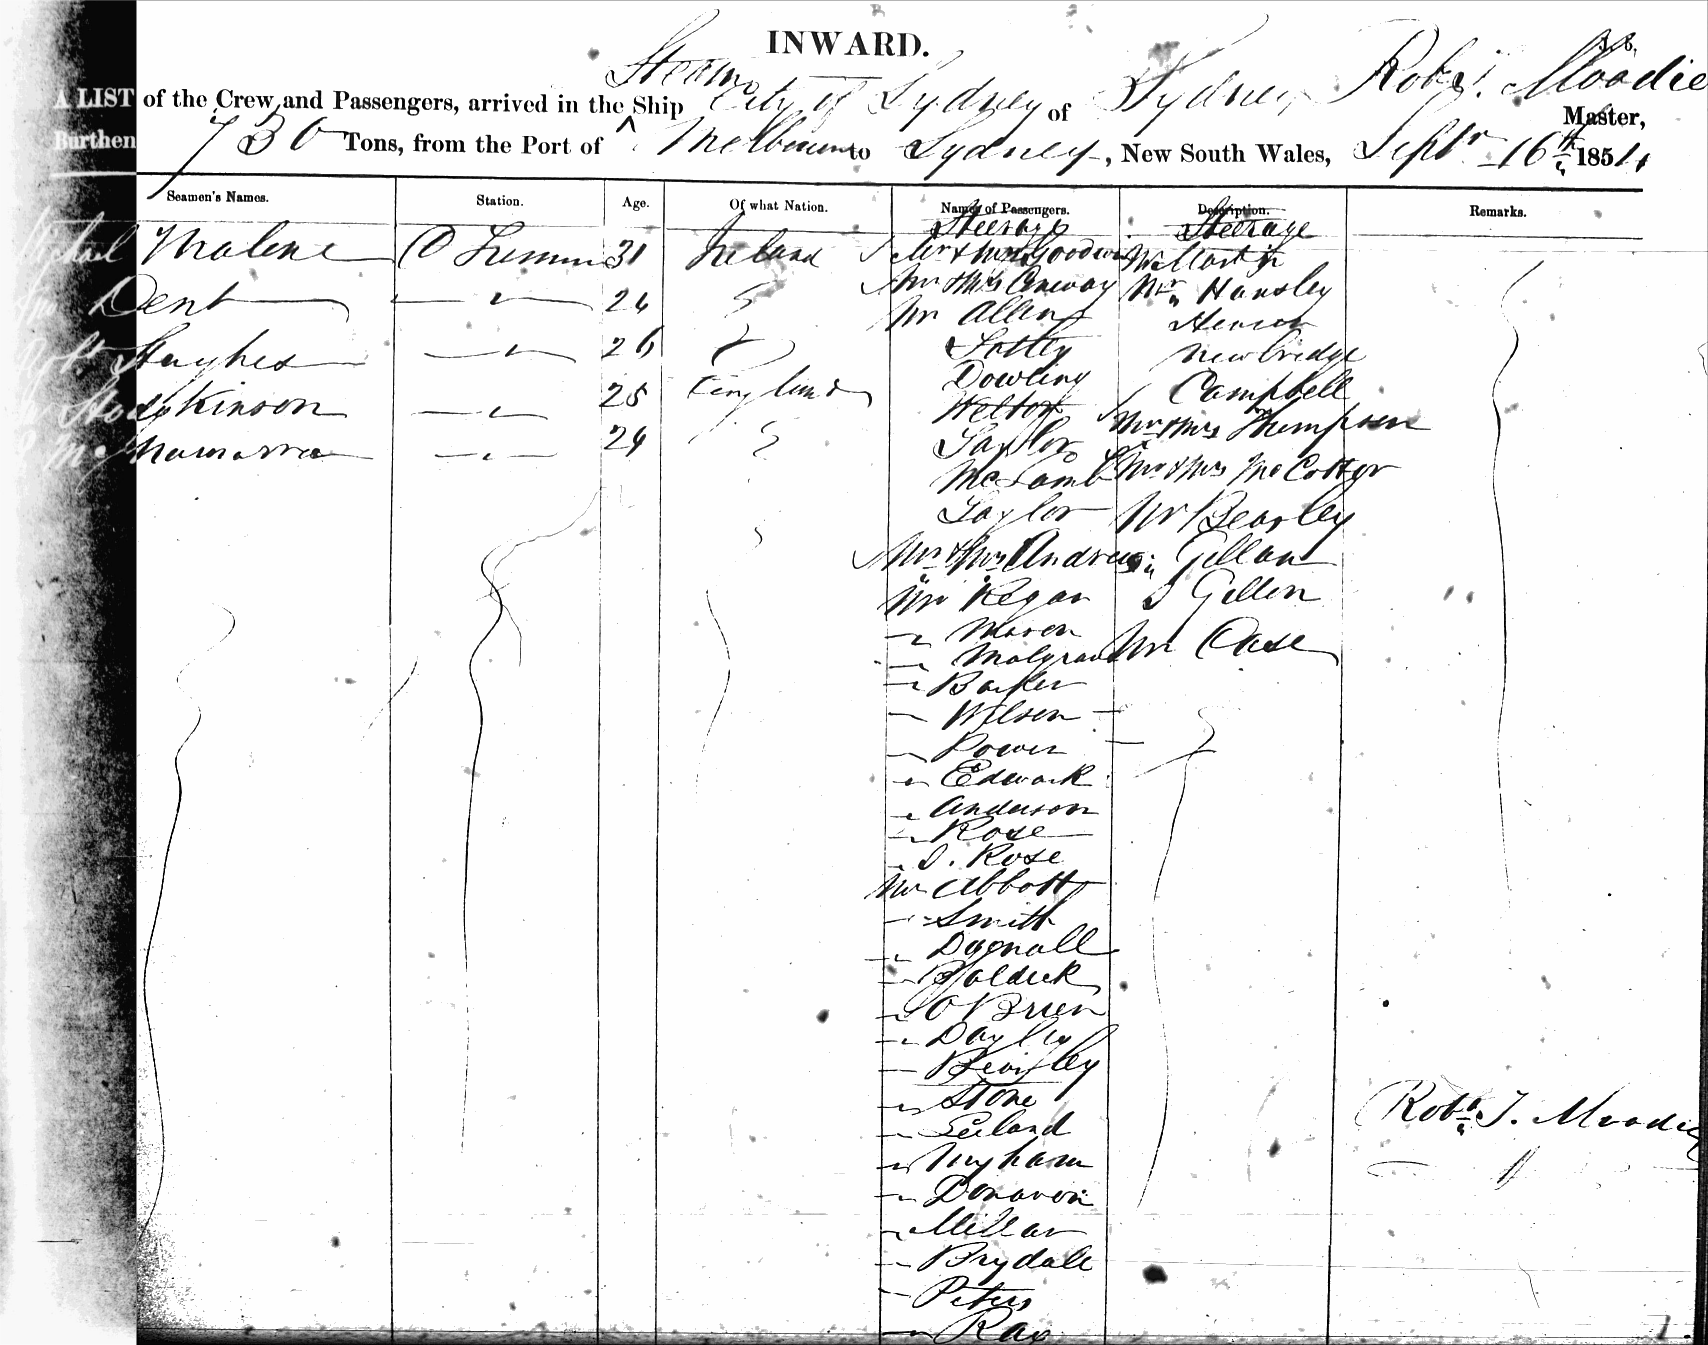 INWARD.
A LIST of the Crew and Passengers, arrived in the Ship Steam City of Sydney of Sydney Robt. Moodie Master,
Burthen 730 Tons, from the Port of Melbourne to Sydney, New South Wales, Septr 16th 1854
Seamen's Names. Station. Age. Of what Nation. Names of Passengers. Description. Remarks.
Steerage Steerage
Michael Malene O Seaman 31 Ireland Mr & Mrs Goodwin Mr Martin
Dent " 24 " Mr & Mrs Conway Mr Hansley
Mr Allen Henson
Robt. Hughes " 26 " Sotley Newbridge
Hodgkinson " 25 England Dowling Campbell
Welton Mr & Mrs Thompson
McNamarra " 24 " Taylor
McLamb Mr & Mrs McCotter
Taylor Mr Bearley
Mr & Mrs Andrews " Gillan
Mr Regan J Gillon
" Maron Mr Case
" Molgrave
" Barker
" Wilson
" Power
" Edwark
" Anderson
" Rose
" J. Rose
Mr Abbott
" Smith
" Dagnall
" Holdick
" O'Brien
" Dayly
" Beinsley
" Stone
" Leeland Robt. J. Moodie
" Ingham
" Donavon
" Millar
" Brydale
" Peters
" Ray